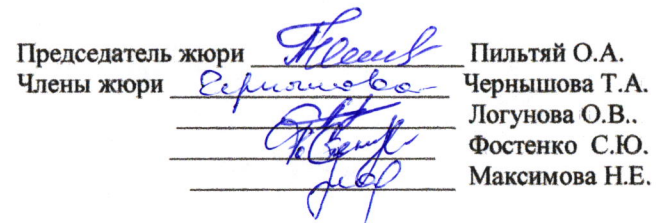 Председатель жюри Пильтяй О.А.
Члены жюри Чернышова Т.А.
Логунова О.В..
Фостенко С.Ю.
Максимова Н.Е.